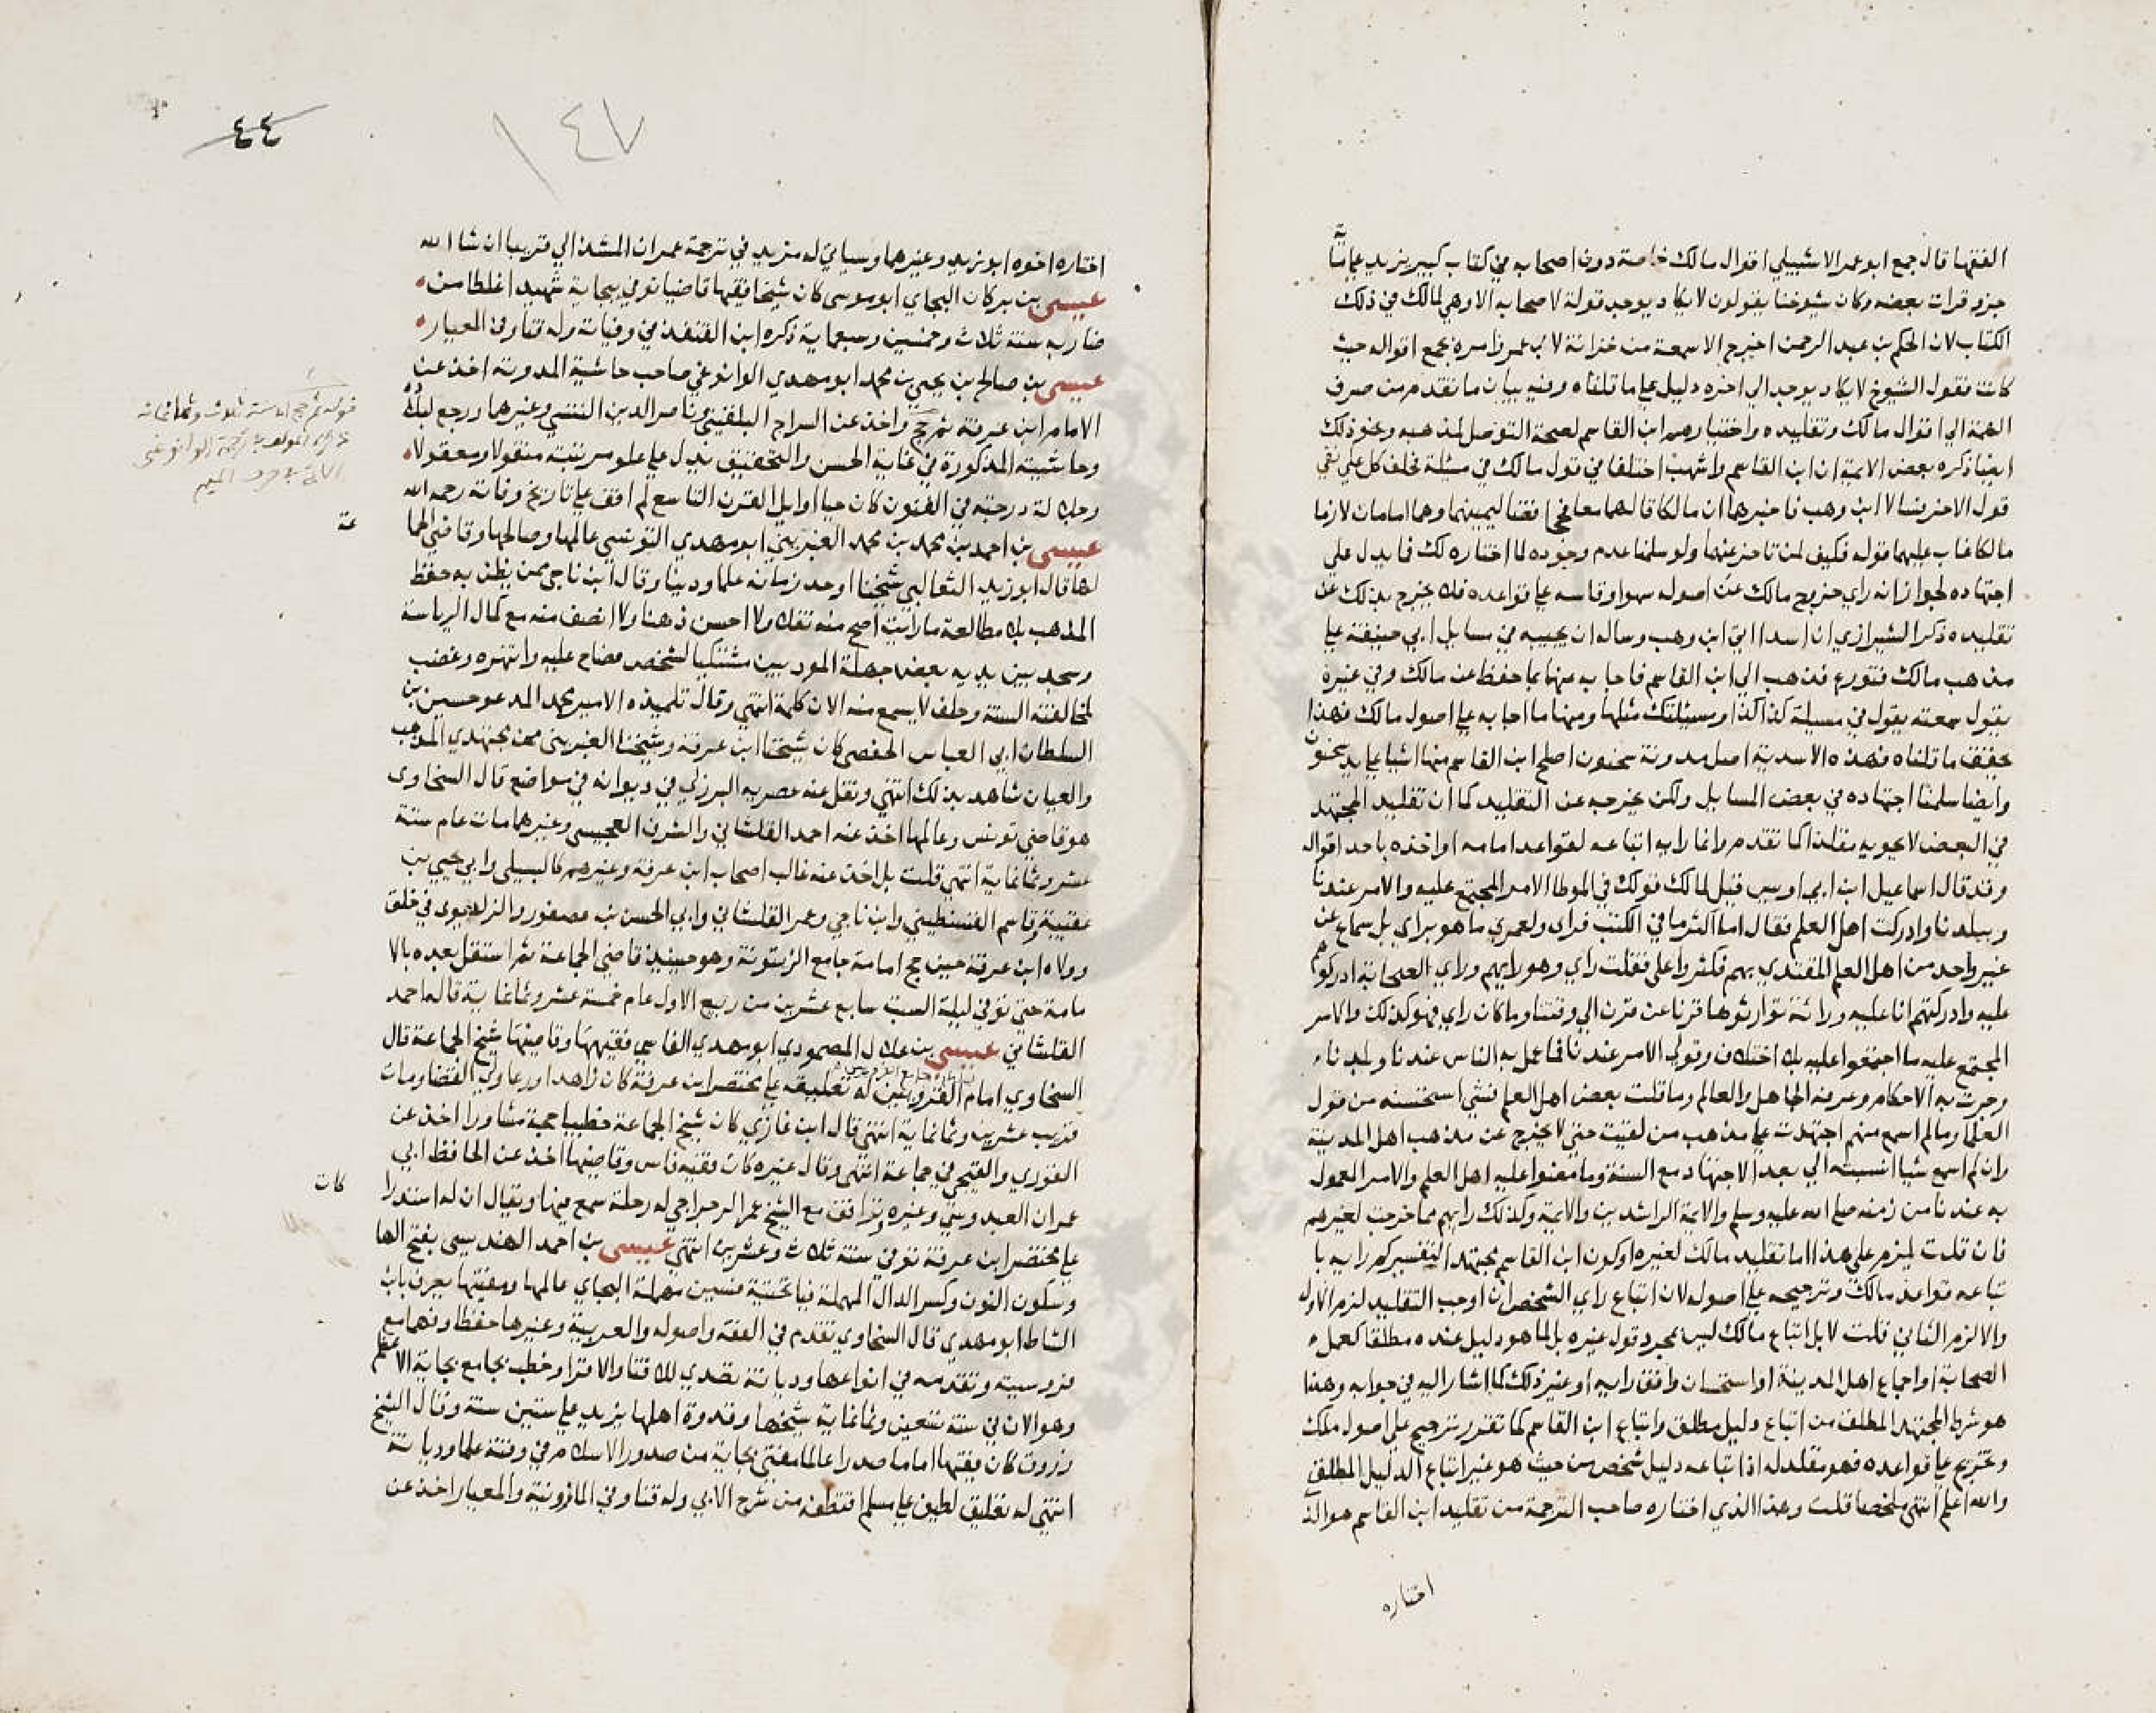 الفقها قال جمع ابو عمر الاشبيلي اقوال مالك خاصة دون اصحابه في كتاب كبير يزيد على ماية
جزو قرات بعضه وكان شيوخنا يقولون لا يكاد يوجد قولة لاصحابه الا وهي لمالك في ذلك
الكتاب لان الحكم بن عبد الرحمن اخرج الاسمعة من خزانة لابي عمر وامره بجمع اقواله حيث
كانت فقول الشيوخ لا يكاد يوجد الى اخره دليل على ما قلناه وفيه بيان ما تقدم من صرف
الهمة الى اقوال مالك وتقليده واختيارهم ابن القاسم لصحة التوصل لمذهبه ونحو ذلك
ايضا ذكره بعض الايمة ان ابن القاسم واشهب اختلفا في قول مالك في مسئلة فحلف كل على نفي
قول الاخر فسالا ابن وهب فاخبرهما ان مالكا قالهما معا فحجا قضا ليمينهما وهما امامان لازما
مالكا غاب عليهما قوله فكيف لمن تاخر عنهما ولو سلمنا عدم وجوده لما اختاره لك فا يدل على
اجتهاده لجواز انه راى خروج مالك عن اصوله سهوا وقاسه على قواعده فلا يخرج بذلك عن
تقليده ذكر الشيرازي ان اسدا اتى ابن وهب وساله ان يجيبه في مسايل ابي حنيفة على
مذهب مالك فتورع فذهب الى ابن القاسم فاجابه منها بما حفظ عن مالك وفي غيره
يقول سمعته يقول في مسيلة كذا كذا ومسيلتك مثلها ومنها ما اجابه على اصول مالك فهذا
يحقق ما قلناه فهذه الاسدية اصل مدونة سحنون اصلح ابن القاسم منها اشيا على يد سحنون
وايضا سلمنا اجتهاده في بعض المسايل ولكن غير حيه عن التقليد كما ان تقليد المجتهد
في البعض لا يعوده مقلدا كما تقدم وانما رايه اتباعه لقواعد امامه او اخذه باحد اقواله
وقد قال اسماعيل ابن ابي اويس قيل لمالك قولك في الموطا الامر المجتمع عليه والامر عندنا
وببلدنا وادركت اهل العلم فقال اما اكثر ما في الكتب فراى ولعمري ما هو براى بل سماع عن
غير واحد من اهل العلم المقتدي بهم فكثروا على فقلت راي وهو رايهم وراي الصحابة ادركوهم
عليه وادركتهم انا عليه وراثة توارثوها قرنا عن قرن الى وقتنا وما كان راي فهو كذلك والامر
المجتمع عليه ما اجتمعوا عليه بلا اختلاف وقولي الامر عندنا فما عمل به الناس عندنا وبلدنا
وجرت به الاحكام وعرفه الجاهل والعالم وما قلت بعض اهل العلم فشي استحسنه من قول
العلما وما لم اسمع منهم اجتهدت على مذهب من لقيت حتى لا يخرج عن مذهب اهل المدينة
وان لم اسمع شيا انسبته الي بعد الاجتهاد مع السنة وما مضوا عليه اهل العلم والامر المعمول
به عندنا من زمنه صلى الله عليه وسلم والايمة الراشدين والايمة وكذلك رايهم مما خرجت لغيرهم
فان قلت يلزم على هذا اما تقليد مالك لغيره او كون ابن القاسم مجتهدا لتفسيركم رايه با
تباعه قواعد مالك وترجيحه على اصوله لان اتباع راي الشخص ان اوجب التقليد لزم الاول
والا لزم الثاني قلت لا بل اتباع مالك ليس بمجرد قول غيره بل لما هو دليل عنده مطلقا كعمل
الصحابة او اجماع اهل المدينة او استحسان وافق رايه او غير ذلك كما اشار اليه في جوابه وهذا
هو شرط المجتهد المطلق من اتباع دليل مطلق واتباع ابن القاسم كما تقرر ترجيح على اصول مالك
وتخريج على قواعده فهو مقلد له اذا اتباعه دليل شخص من حيث هو غير اتباع الدليل المطلق
والله اعلم انتهى ملخصا قلت وهذا الذي اختاره صاحب الترجمة من تقليد ابن القاسم هو الذ
اختاره
١٤٧
٤٤
اختاره اخوه ابو زيد وغيرهما وسياتي له مزيد في ترجمة عمران المشذالي قريبا ان شا الله
عيسى بن بركان البجاي ابو موسى كان شيخا فقيها قاضيا توفي ببجاية شهيدا غلطا من
ضاربه سنة ثلاث وخمسين وسبعماية ذكره ابن القنفذ في وفياته وله فتاوى في المعيار
عيسى بن صالح بن يحيى بن محمد ابو مهدي الوانوغي صاحب حاشية المدونة اخذ عن
الامام ابن عرفة ثم حج واخذ عن السراج البلقيني وناصر الدين التنسي وغيرهما ورجع لبلده
وحاشيته المذكورة في غاية الحسن والتحقيق تدل على علو مرتبته منقولا ومعقولا
وجلالة درجته في الفنون كان حيا اوايل القرن التاسع لم اقف على تاريخ وفاته رحمه الله
عيسى بن احمد بن محمد بن محمد الغبريني ابو مهدي التونسي عالمها وصالحها وقاضي الجما
لها قال ابو زيد الثعالبي شيخنا اوحد زمانه علما ودينا وقال ابن ناجي ممن يظن به حفظ
المذهب بلا مطالعة ما رايت اصح منه نقلا ولا احسن ذهنا ولا انصف منه مع كمال الرياسة
وسجد بين يديه بعض جهلة المودبين مشتكيا لشخص فصاح عليه وانتهره وغضب
لمخالفته السنة وحلف لا يسمع منه الان كلمة انتهى وقال تلميذه الامير محمد المدعو حسين بن
السلطان ابي العباس الحفصي كان شيخنا ابن عرفة وشيخنا الغبريني ممن مجتهدي المذهب
والعيان شاهد بذلك انتهى ونقل عنه عصريه البرزلي في ديوانه في مواضع قال السخاوى
هو قاضي تونس وعالمها اخذ عنه احمد القلشاني والشرف العجيسي وغيرهما مات عام ستة
عشر وثمانماية انتهى قلت بل اخذ عنه غالب اصحاب ابن عرفة وغيرهم كالبسيلي وابي يحيى بن
عقيبة وقاسم القسنطيني وابن ناجي وعمر القلشاني وابي الحسن بن عصفور والزلديوى في خلق
وولاه ابن عرفة حين حج امامة جامع الزيتونة وهو حينيذ قاضي الجماعة ثم استقل بعده بالا
مامة حتى توفي ليلة السبت سابع عشرين من ربيع الاول عام خمسة عشر وثمانماية قاله احمد
القلشاني عيسى بن علال المصمودي ابو مهدي الفاسي فقيهها وقاضيها شيخ الجماعة قال
السخاوي امام القرويين له تعليقه على مختصر ابن عرفة كان زاهدا ورعا ولي القضا ومات
قريب عشرين وثمانماية انتهى قال ابن غازي كان شيخ الجماعة خطيبا حجة مشاورا اخذ عن
القوري والفيجي في جماعة انتهى وقال غيره كان فقيه فاس وقاضيها اخذ عن الحافظ ابي
عمران العبدوسي وغيره وترافق مع الشيخ عمر الرجراجي له رحلة سمع فيها ويقال ان له استدرا
على مختصر ابن عرفة توفي سنة ثلاث وعشرين انتهى عيسى بن احمد الهنديسي بفتح الها
وسكون النون وكسر الدال المهملة فيا تحتية فسين مهملة البجاي عالمها ومفتيها يعرف بابن
الشاط ابو مهدي قال السخاوي تقدم في الفقه واصوله والعربية وغيرها حفظا وفهما مع
فروسية وتقدمه في انواعها وديانة تصدي للافتا والاقرا وخطب بجامع بجاية الاعظم
وهو الان في سنة تسعين وثمانماية شيخها وقدوة اهلها يزيد على ستين سنة وقال الشيخ
زروق كان فقيها اماما صدرا عالما مفتي بجاية من صدور الاسلام في وقته علما وديانة
انتهى له تعليق لطيف على مسلم اقتطفه من شرح الابي وله فتاوى في المازونية والمعيار اخذ عن
عة
كات